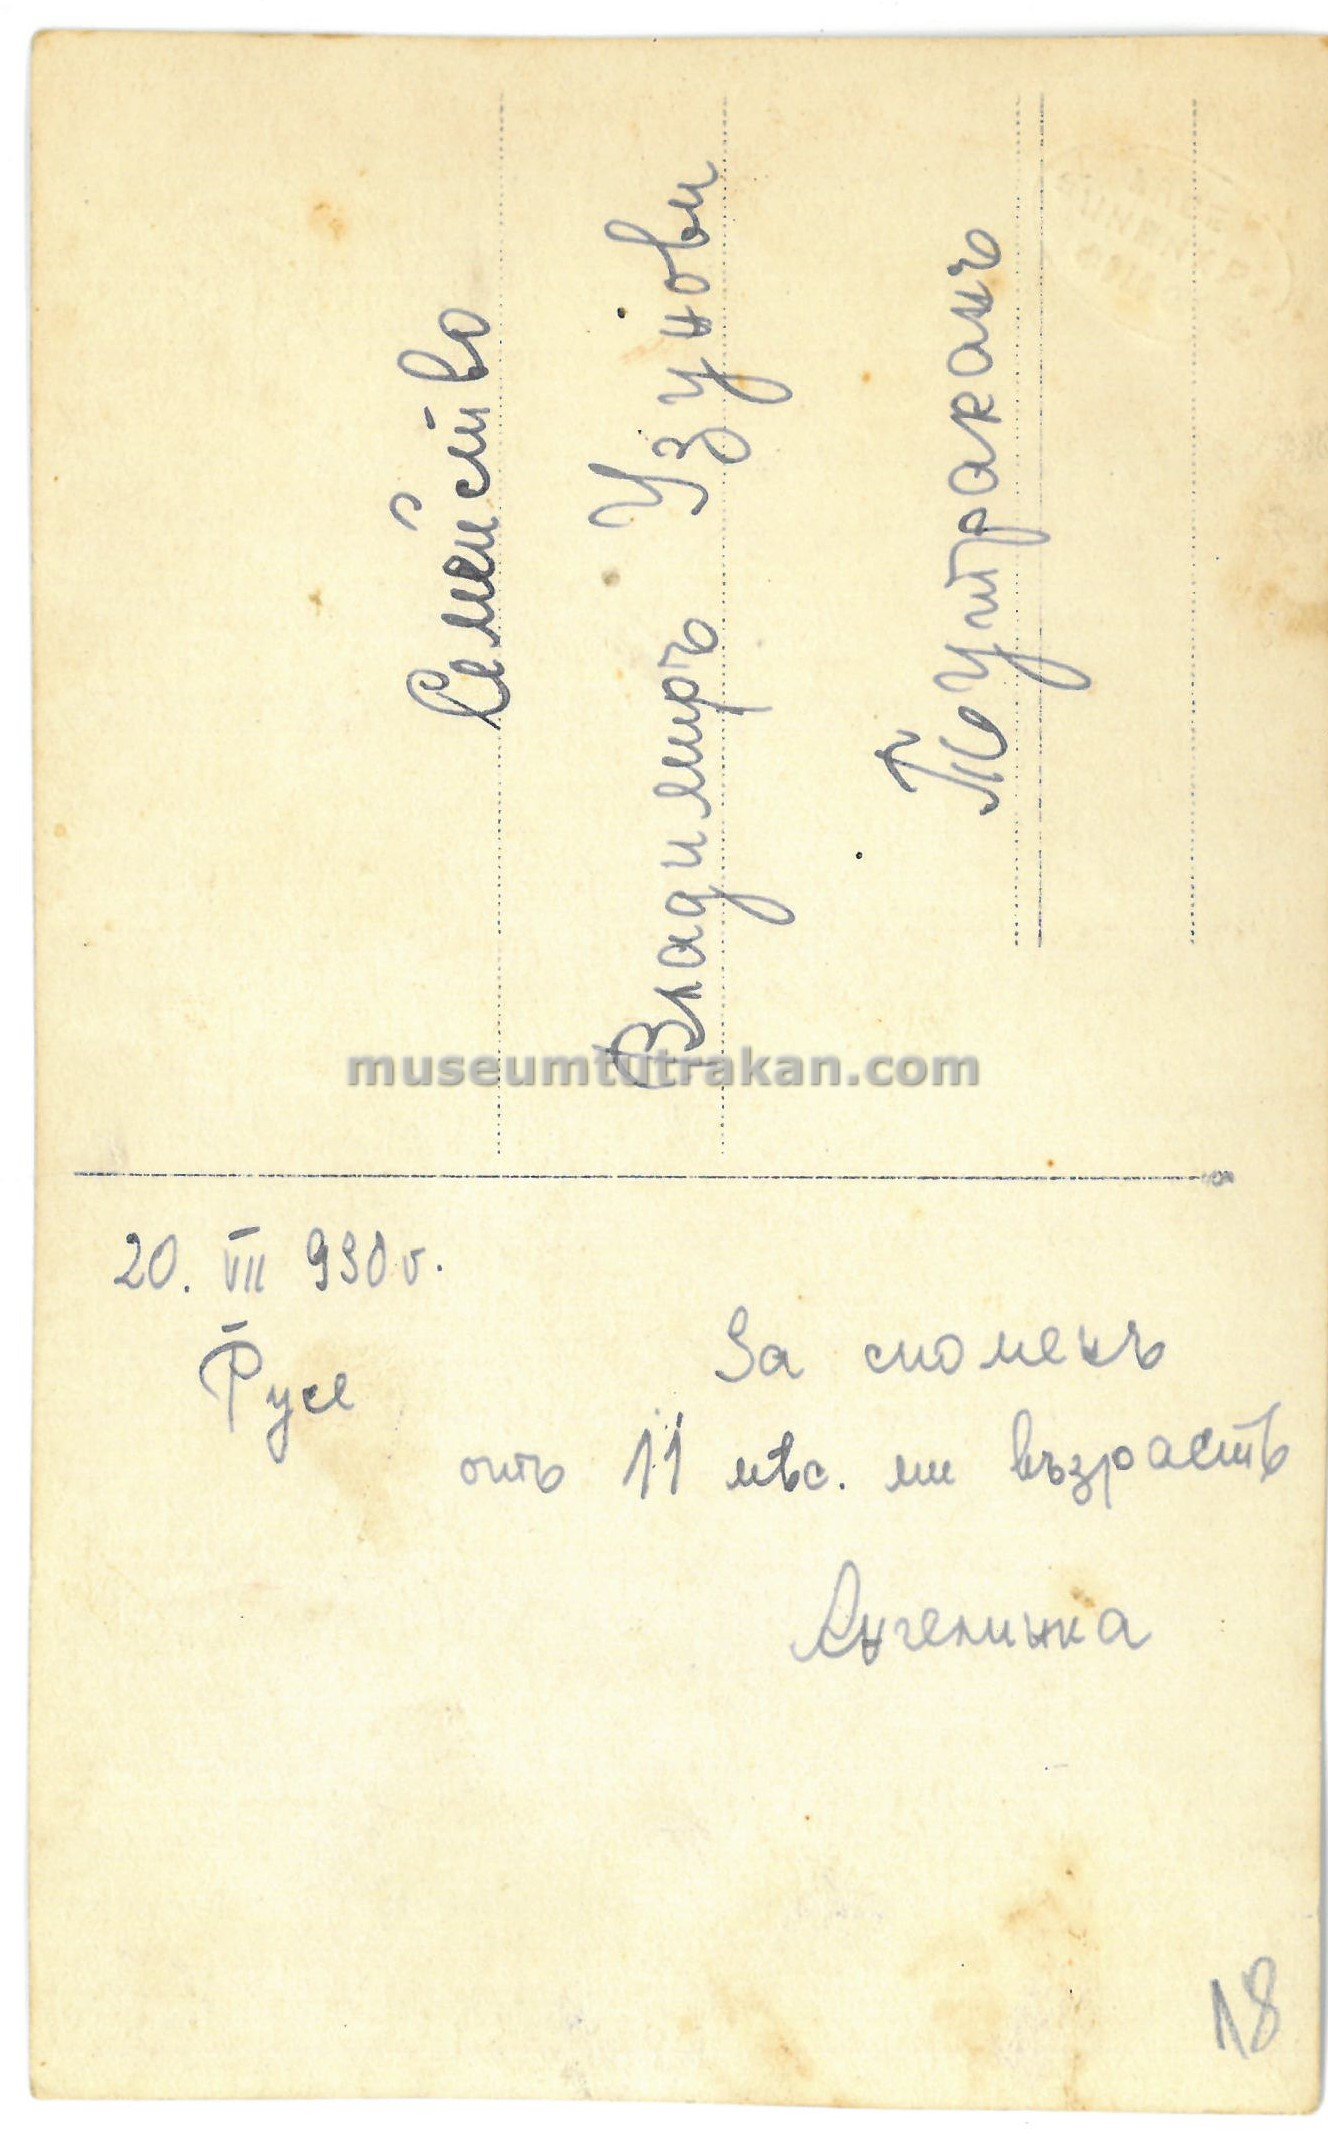 Семейство
Владимиръ Узунови
Тутраканъ
museumtutrakan.com
20. VII 930 г.
Русе
За споменъ
отъ 11 мѣс. ми възрасть
Ангелинка
18